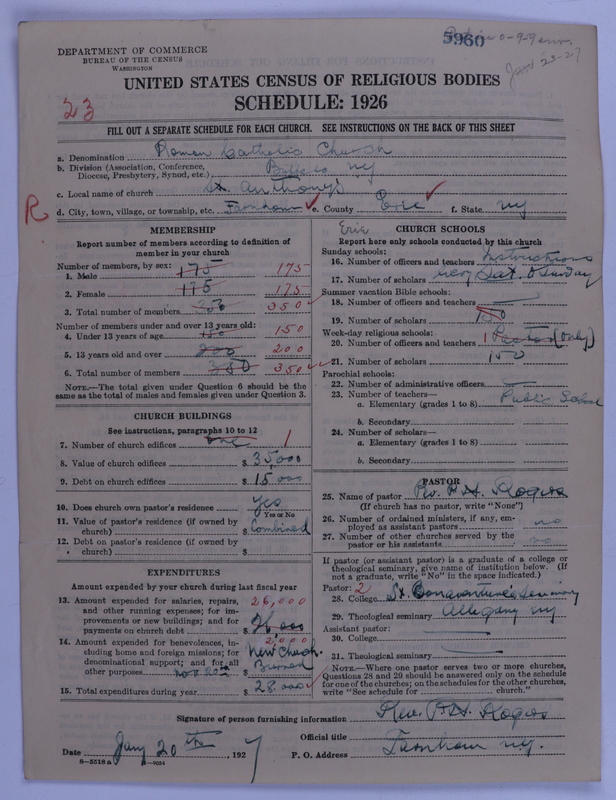 5960
Jan 23-27
DEPARTMENT OF COMMERCE
BUREAU OF THE CENSUS
WASHINGTON
UNITED STATES CENSUS OF RELIGIOUS BODIES
SCHEDULE: 1926
23
FILL OUT A SEPARATE SCHEDULE FOR EACH CHURCH. SEE INSTRUCTIONS ON THE BACK OF THIS SHEET
a. Denomination Roman Catholic Church
b. Division (Association, Conference, Diocese, Presbytery, Synod, etc.) Buffalo NY
c. Local name of church St. Anthony's
R d. City, town, village, or township, etc. Farnham e. County Erie f. State NY
Erie
MEMBERSHIP
Report number of members according to definition of member in your church
Number of members, by sex:
1. Male 175 175
2. Female 175 175
3. Total number of members 350 350
Number of members under and over 13 years old:
4. Under 13 years of age 150 150
5. 13 years old and over 200 200
6. Total number of members 350 350
NOTE.—The total given under Question 6 should be the same as the total of males and females given under Question 3.
CHURCH BUILDINGS
See instructions, paragraphs 10 to 12
7. Number of church edifices one 1
8. Value of church edifices $ 35,000
9. Debt on church edifices $ 15,000
10. Does church own pastor's residence Yes
Yes or No
11. Value of pastor's residence (if owned by church) $ Combined
12. Debt on pastor's residence (if owned by church) $
EXPENDITURES
Amount expended by your church during last fiscal year
13. Amount expended for salaries, repairs, and other running expenses; for improvements or new buildings; and for payments on church debt $ 26,000 26,000
14. Amount expended for benevolences, including home and foreign missions; for denominational support; and for all other purposes $ 2,000 New Church. Burned
15. Total expenditures during year $ 28,000
CHURCH SCHOOLS
Report here only schools conducted by this church
Sunday schools:
16. Number of officers and teachers Instructions
17. Number of scholars every Sat. & Sunday
Summer vacation Bible schools:
18. Number of officers and teachers
19. Number of scholars 150
Week-day religious schools:
20. Number of officers and teachers 1 Pastor (only)
21. Number of scholars 150
Parochial schools:
22. Number of administrative officers
23. Number of teachers—
a. Elementary (grades 1 to 8) Public School
b. Secondary
24. Number of scholars—
a. Elementary (grades 1 to 8)
b. Secondary
PASTOR
25. Name of pastor Rev. P. H. Rogers
(If church has no pastor, write "None")
26. Number of ordained ministers, if any, employed as assistant pastors no
27. Number of other churches served by the pastor or his assistants no
If pastor (or assistant pastor) is a graduate of a college or theological seminary, give name of institution below. (If not a graduate, write "No" in the space indicated.)
Pastor: 2
28. College St. Bonaventure's Seminary
29. Theological seminary Allegany NY
Assistant pastor:
30. College
31. Theological seminary
NOTE.—Where one pastor serves two or more churches, Questions 28 and 29 should be answered only on the schedule for one of the churches; on the schedules for the other churches, write "See schedule for church."
Signature of person furnishing information Rev. P. H. Rogers
Official title
Date Jany 20th, 1927 P. O. Address Farnham NY.
8—5518 a 8—9034